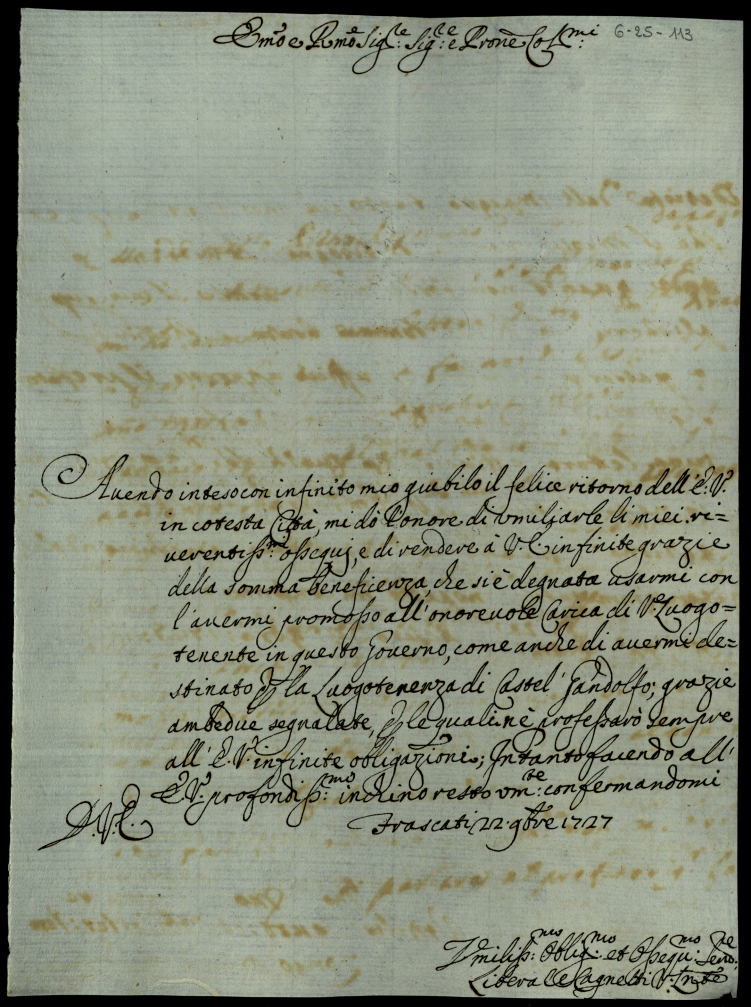 Em̃o e Rm̃o Sig.re Sig.re e Prone Co l.mi 6-25-113
Auendo inteso con infinito mio giubilo il felice ritorno dell' E. V.
in cotesta Città, mi dò l'onore di umiliarle li miei ri=
uerentiss.mi ossequj, e di rendere à V. E. infinite grazie
della somma beneficienza, che si è degnata usarmi con
l'auermi promosso all' onorevole Carica di Ve. Luogo=
tenente in questo Gouerno, come anche di auermi de=
stinato p la Luogotenenza di Castel' Gandolfo; grazie
ambedue segnalate, p le quali nè professarò sempre
all' E. V. infinite obligazioni; Intanto facendo all'
E. V. profondiss.mo inchino resto um.te confermandomi
D. V. E.
Frascati 22 9bre 1727
Vmiliss.mo Obblig.mo et Ossequ.mo Seru.re
Liberal